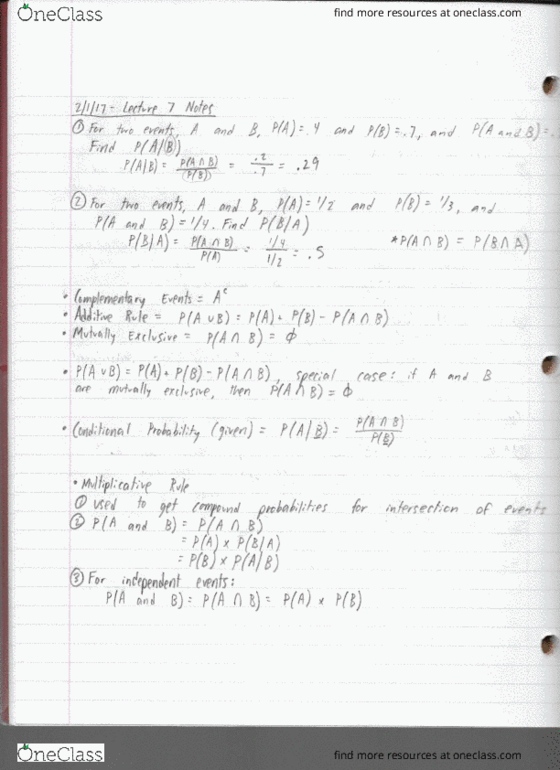 OneClass
find more resources at oneclass.com
2/1/17 - Lecture 7 Notes
① For two events, A and B, P(A)=.4 and P(B)=.7, and P(A and B)=.
Find P(A|B)
P(A|B) = P(A∩B)/(P(B)) = .2/.7 = .29
② For two events, A and B, P(A)=1/2 and P(B)=1/3, and
P(A and B)=1/4. Find P(B/A)
P(B|A) = P(A∩B)/P(A) = 1/4/1/2 = .5 *P(A∩B) = P(B∩A)
• Complementary Events = Aᶜ
• Additive Rule = P(A∪B) = P(A)+P(B)-P(A∩B)
• Mutually Exclusive = P(A∩B) = ϕ
• P(A∪B) = P(A)+P(B)-P(A∩B), special case: if A and B
are mutually exclusive, then P(A∩B)=ϕ
• Conditional Probability (given) = P(A|B) = P(A∩B)/P(B)
• Multiplicative Rule
① used to get compound probabilities for intersection of events
② P(A and B) = P(A∩B)
= P(A) x P(B/A)
= P(B) x P(A|B)
③ For independent events:
P(A and B) = P(A∩B) = P(A) x P(B)
OneClass
find more resources at oneclass.com